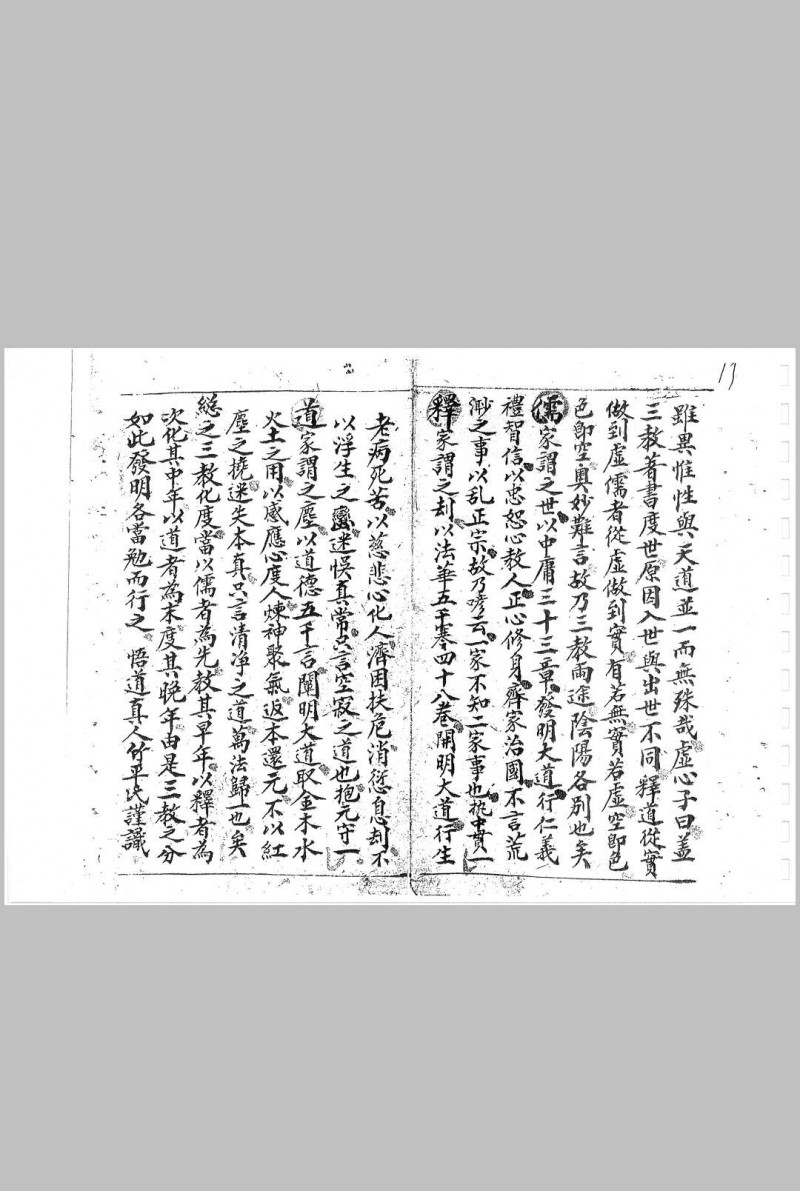 13
雖異惟性與天道並一而無殊哉虛心子曰盖
三教著書度世原因入世與出世不同釋道從實
做到虛儒者從虛做到實有若無實若虛空即色
色即空奧妙難言故乃三教兩途陰陽各別也矣
儒家謂之世以中庸三十三章發明大道行仁義
禮智信以忠恕心教人正心修身齊家治國不言荒
渺之事以乱正宗故乃嘐云一家不知二家事也执中貫一
釋家謂之刦以法華五千零四十八卷開明大道行生
老病死苦以慈悲心化人濟困扶危消愆息刦不
以浮生之迷悮真常只言空寂之道也抱元守一
道家謂之塵以道德五千言闡明大道取金木水
火土之用以感應心度人煉神聚氣返本還元不以紅
塵之撓迷失本真只言清净之道萬法歸一也矣
緫之三教化度當以儒者為先教其早年以釋者為
次化其中年以道者為末度其晚年由是三教之分
如此發明各當勉而行之 悟道真人竹平氏謹識